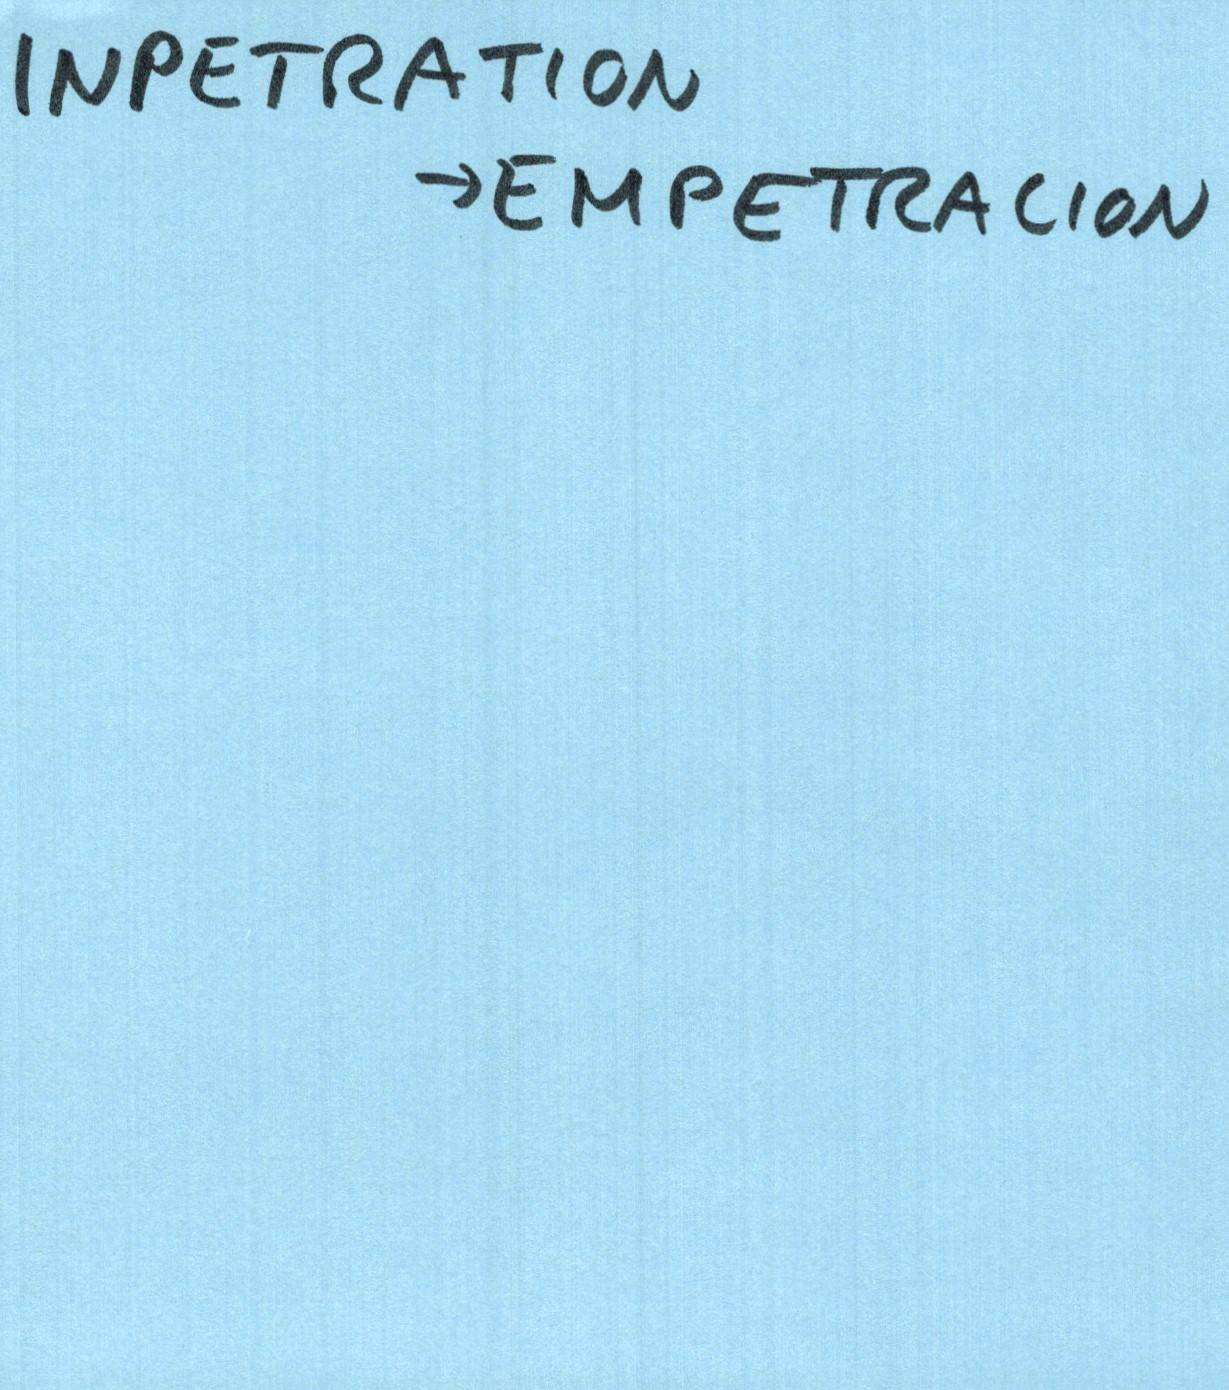 INPETRATION
→EMPETRACION